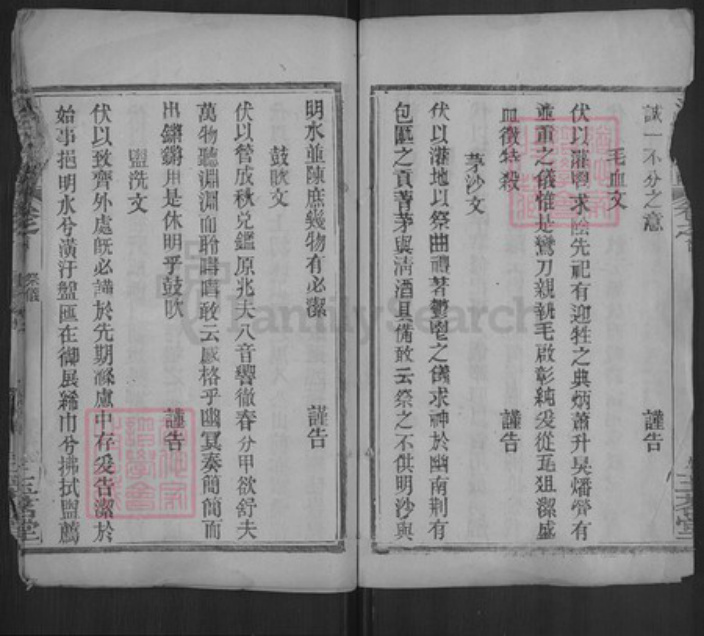 誠一不分之意　謹告
毛血文
伏以灌鬯求陰先祀有迎牲之典炳蕭升臭燔膋有
並重之儀惟是鸞刀親執毛啟彰純爰從毛狙潔盛
血徵特殺　謹告
茅沙文
伏以灌地以祭曲禮著鬱鬯之儀求神於幽南荆有
包匭之貢菁茅與清酒具備敢云祭之不供明沙與
明水並陳庶幾物有必潔　謹告
鼓吹文
伏以管成秋兌鑑原兆夫八音響徹春分甲欲舒夫
萬物聽淵淵而聆嘒嘒敢云感格乎幽冥奏簡簡而
出鏘鏘用是休明乎鼓吹　謹告
盥洗文
伏以致齊外處既必謹於先期滌慮中存爰告潔於
始事挹明水兮潢汙盤匜在御展絺巾兮拂拭盥薦
三茗堂
祭儀
FamilySearch